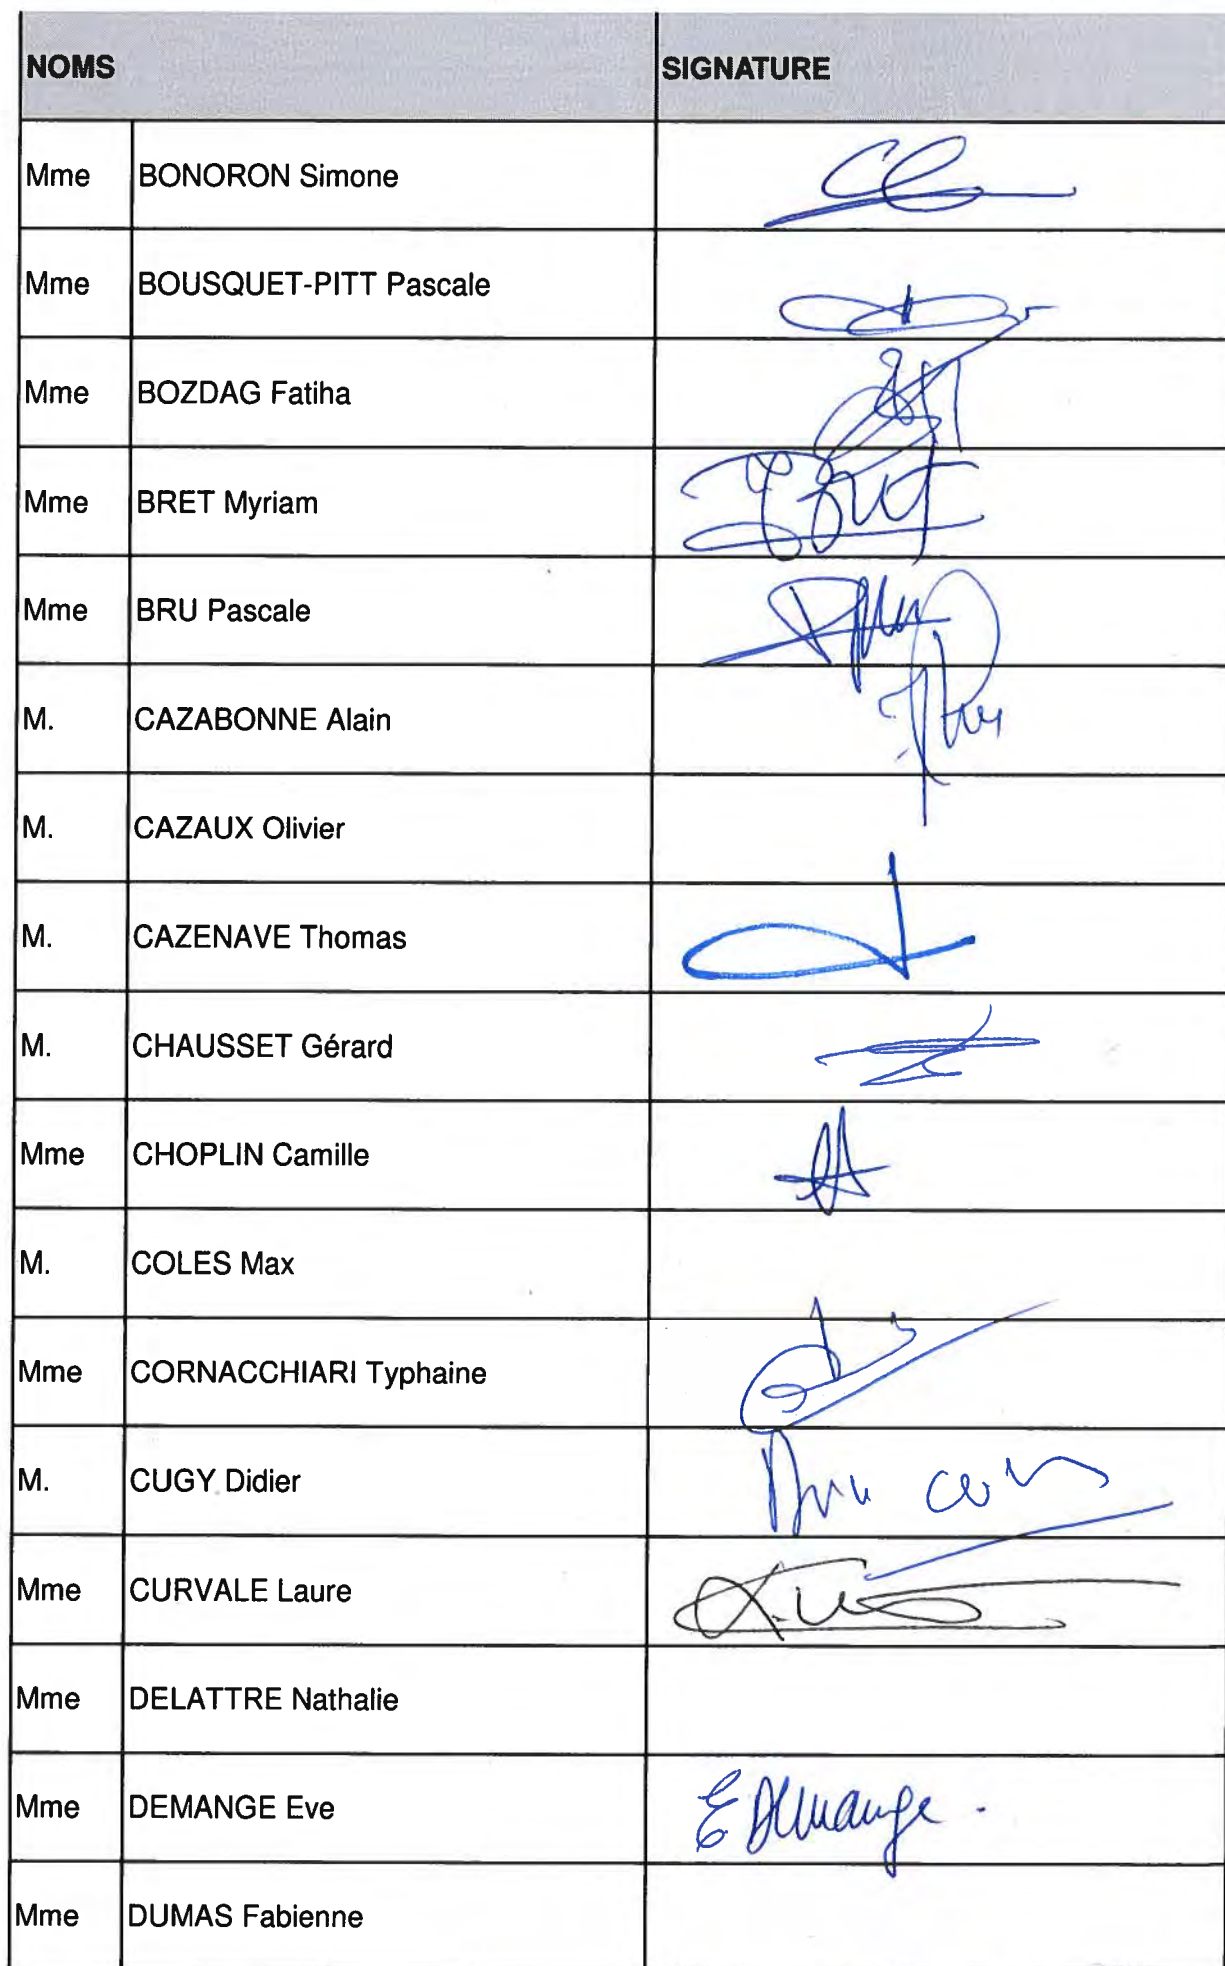 NOMS SIGNATURE
Mme BONORON Simone
Mme BOUSQUET-PITT Pascale
Mme BOZDAG Fatiha
Mme BRET Myriam
Mme BRU Pascale
M. CAZABONNE Alain
M. CAZAUX Olivier
M. CAZENAVE Thomas
M. CHAUSSET Gérard
Mme CHOPLIN Camille
M. COLES Max
Mme CORNACCHIARI Typhaine
M. CUGY Didier
Mme CURVALE Laure
Mme DELATTRE Nathalie
Mme DEMANGE Eve E Demange.
Mme DUMAS Fabienne